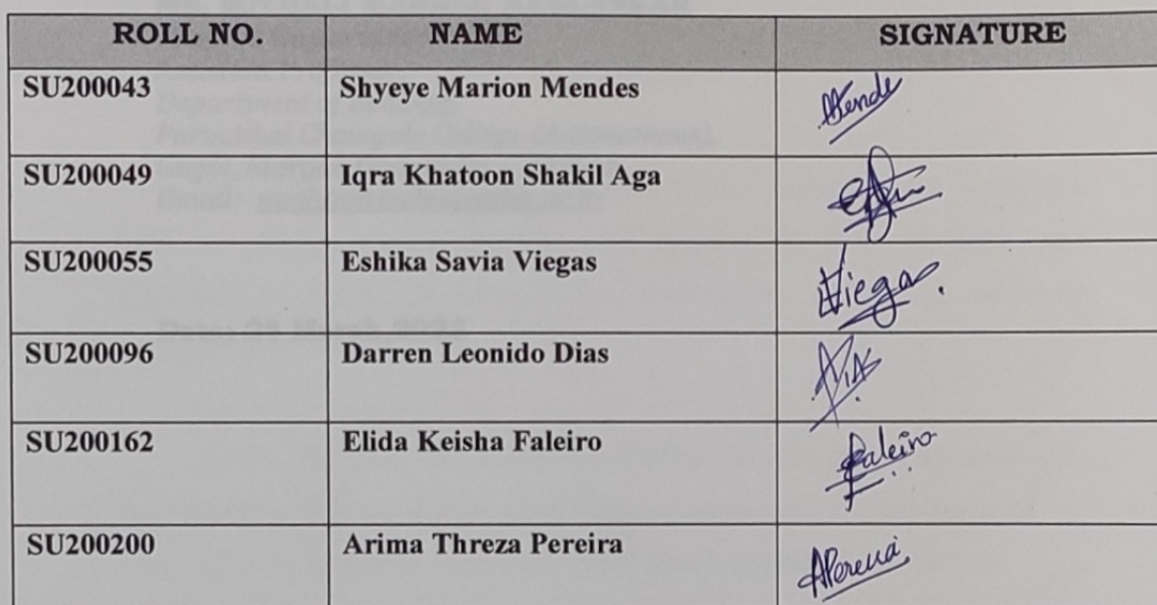 ROLL NO. NAME SIGNATURE
SU200043 Shyeye Marion Mendes
SU200049 Iqra Khatoon Shakil Aga
SU200055 Eshika Savia Viegas Viegas.
SU200096 Darren Leonido Dias
SU200162 Elida Keisha Faleiro Faleiro
SU200200 Arima Threza Pereira